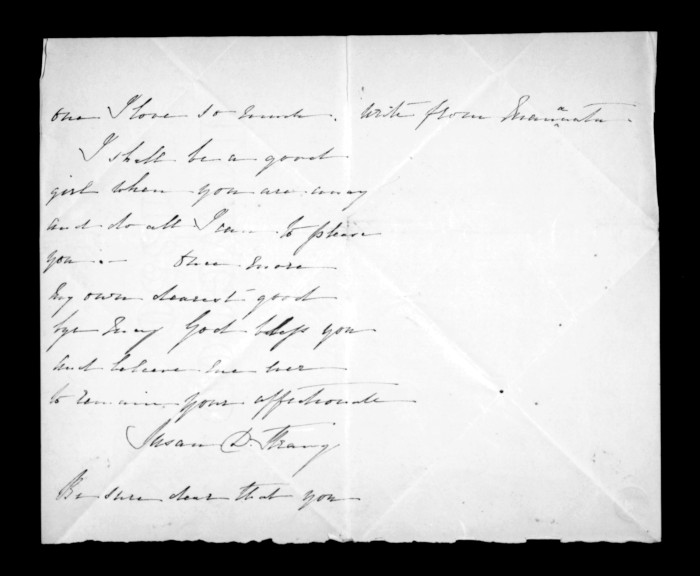 one I love so much.
I shall be a good
girl when you are away
and do all I can to please
you. - Once more
my own dearest good
bye may God bless you
and believe me ever
to remain your affectionate
Susan D. Strang
Be sure dear that you
write from Manawatu.